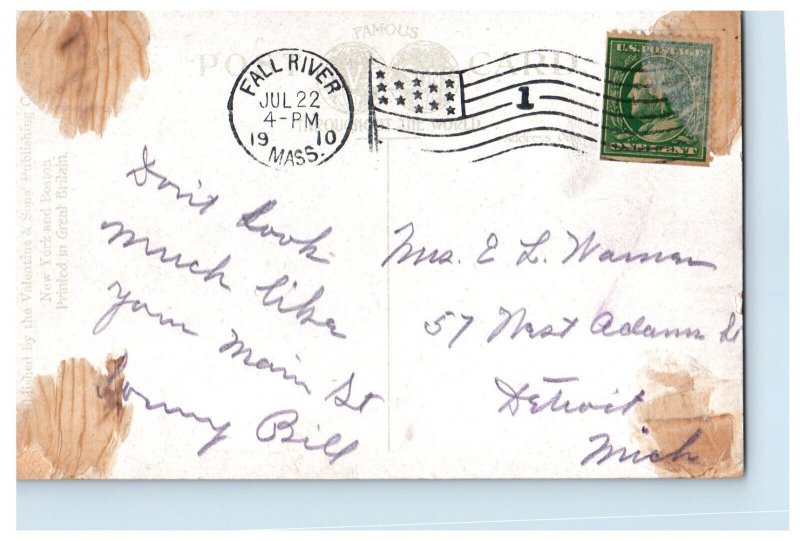 FAMOUS
POST CARD
THROUGHOUT THE WORLD
FALL RIVER
JUL 22
4-PM
1910
MASS.
1
U.S. POSTAGE
ONE CENT
Published by the Valentine & Sons' Publishing
New York and Boston
Printed in Great Britain.
Don't look
much like
your Main St
Bill
Mrs. E L. Warner
57 West Adams St
Detroit
Mich